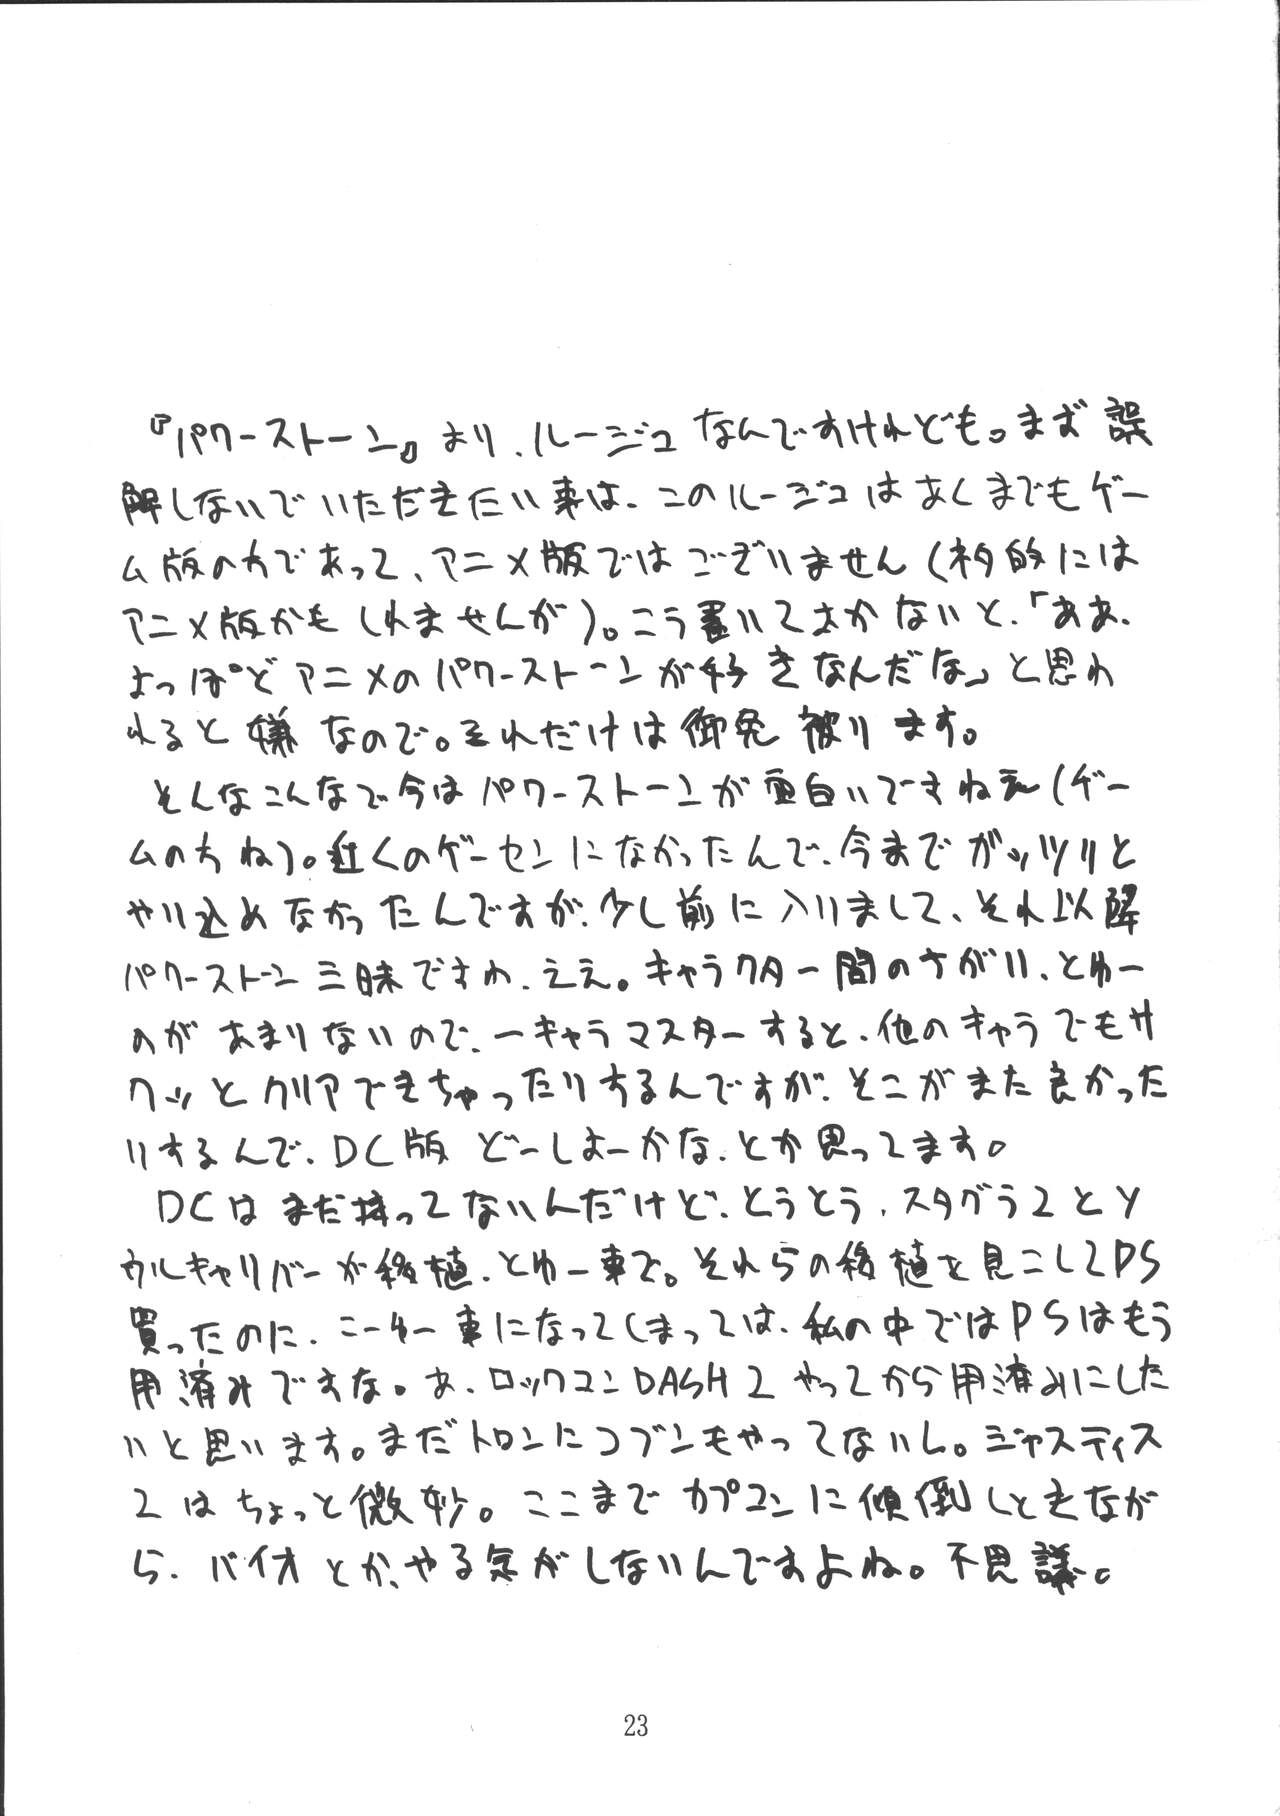 『パワーストーン』より、ルージュなんですけれども。まず誤
解しないでいただきたい事は、このルージュはあくまでもゲー
ム版の方であって、アニメ版ではございません(ネタ的には
アニメ版かもしれませんが)。こう書いておかないと、「ああ、
よっぽどアニメのパワーストーンが好きなんだな」と思わ
れると嫌なので。それだけは御免被ります。
そんなこんなで今はパワーストーンが面白いですねえ(ゲー
ムの方ね)。近くのゲーセンになかったんで、今までガッツリと
やり込めなかったんですが、少し前に入りまして、それ以降
パワーストーン三昧ですわ、ええ。キャラクター間のさがい、とゆー
のがあまりないので、一キャラマスターすると、他のキャラでもサ
クッとクリアできちゃったりするんですが、そこがまた良かった
りするんで、DC版どーしよーかな、とか思ってます。
DCはまだ持ってないんだけど、とうとう、スタグラ2とソ
ウルキャリバーが移植、とゆー事で。それらの移植を見こしてPS
買ったのに、こーゆー事になってしまっては、私の中ではPSはもう
用済みですな。あ、ロックマンDASH2やってから用済みにした
いと思います。まだトロンにコブンもやってないし。ジャスティス
2はちょっと微妙。ここまでカプコンに傾倒しときなが
ら、バイオとか、やる気がしないんですよね。不思議。
23